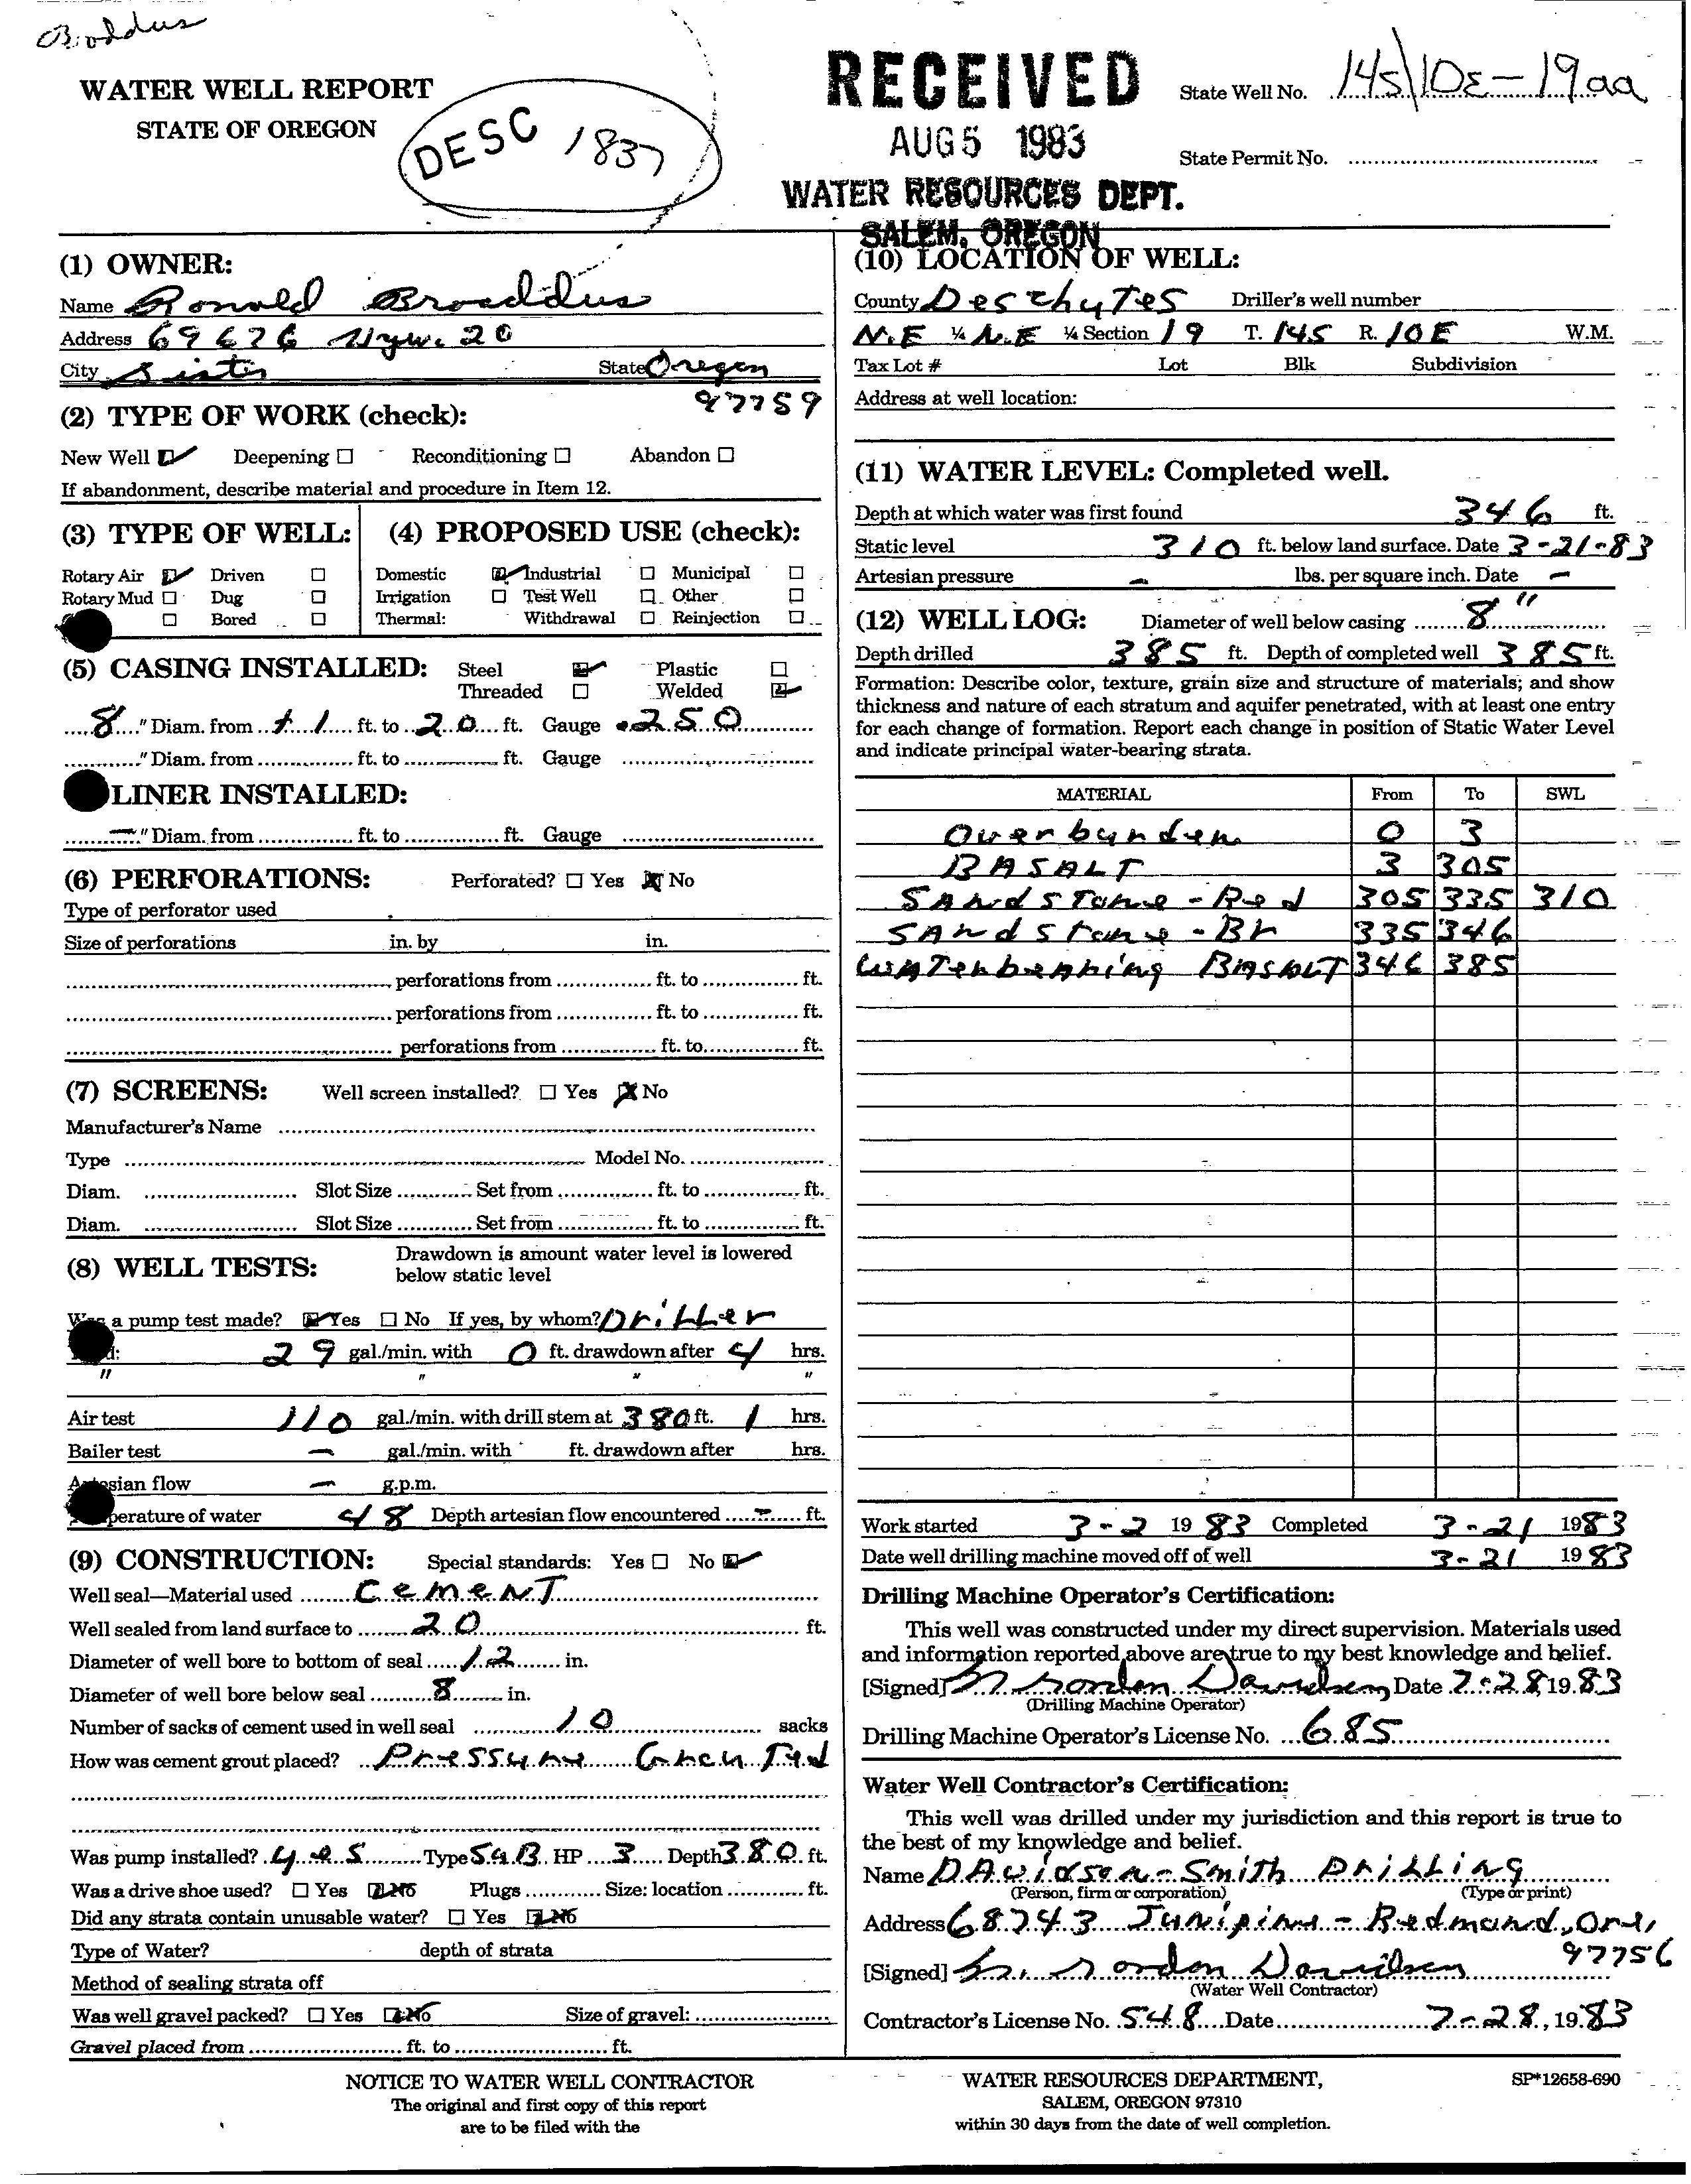 Broddus
WATER WELL REPORT
STATE OF OREGON
DESC 1837
RECEIVED
AUG 5 1983
WATER RESOURCES DEPT.
SALEM, OREGON
State Well No. 14S/10E-19aa
State Permit No.
(1) OWNER:
Name Ronald Broaddus
Address 69676 Hyw. 20
City Sisters State Oregon
97759
(2) TYPE OF WORK (check):
New Well ☑ Deepening ☐ Reconditioning ☐ Abandon ☐
If abandonment, describe material and procedure in Item 12.
(3) TYPE OF WELL:
Rotary Air ☑ Driven ☐
Rotary Mud ☐ Dug ☐
☐ Bored ☐
(4) PROPOSED USE (check):
Domestic ☑ Industrial ☐ Municipal ☐
Irrigation ☐ Test Well ☐ Other ☐
Thermal: Withdrawal ☐ Reinjection ☐
(5) CASING INSTALLED: Steel ☑ Plastic ☐
Threaded ☐ Welded ☑
8 " Diam. from +1 ft. to 20 ft. Gauge .250
" Diam. from ft. to ft. Gauge
LINER INSTALLED:
— " Diam. from ft. to ft. Gauge
(6) PERFORATIONS: Perforated? ☐ Yes ☒ No
Type of perforator used
Size of perforations in. by in.
perforations from ft. to ft.
perforations from ft. to ft.
perforations from ft. to ft.
(7) SCREENS: Well screen installed? ☐ Yes ☒ No
Manufacturer's Name
Type Model No.
Diam. Slot Size Set from ft. to ft.
Diam. Slot Size Set from ft. to ft.
(8) WELL TESTS: Drawdown is amount water level is lowered
below static level
Was a pump test made? ☑ Yes ☐ No If yes, by whom? Driller
29 gal./min. with 0 ft. drawdown after 4 hrs.
" " " "
Air test 110 gal./min. with drill stem at 380 ft. 1 hrs.
Bailer test — gal./min. with ft. drawdown after hrs.
Artesian flow — g.p.m.
perature of water 48 Depth artesian flow encountered — ft.
(9) CONSTRUCTION: Special standards: Yes ☐ No ☑
Well seal—Material used CemeNT
Well sealed from land surface to 20 ft.
Diameter of well bore to bottom of seal 12 in.
Diameter of well bore below seal 8 in.
Number of sacks of cement used in well seal 10 sacks
How was cement grout placed? Pressure GrouTed
Was pump installed? yes Type SuB HP 3 Depth 380 ft.
Was a drive shoe used? ☐ Yes ☑ No Plugs Size: location ft.
Did any strata contain unusable water? ☐ Yes ☑ No
Type of Water? depth of strata
Method of sealing strata off
Was well gravel packed? ☐ Yes ☑ No Size of gravel:
Gravel placed from ft. to ft.
(10) LOCATION OF WELL:
County DeschuTes Driller's well number
N.E ¼ N.E ¼ Section 19 T. 14S R. 10E W.M.
Tax Lot # Lot Blk Subdivision
Address at well location:
(11) WATER LEVEL: Completed well.
Depth at which water was first found 346 ft.
Static level 310 ft. below land surface. Date 3-21-83
Artesian pressure — lbs. per square inch. Date —
(12) WELL LOG: Diameter of well below casing 8"
Depth drilled 385 ft. Depth of completed well 385 ft.
Formation: Describe color, texture, grain size and structure of materials; and show
thickness and nature of each stratum and aquifer penetrated, with at least one entry
for each change of formation. Report each change in position of Static Water Level
and indicate principal water-bearing strata.
MATERIAL From To SWL
Overburden 0 3
BASALT 3 305
SAndsTone - Red 305 335 310
SAndstone - Br 335 346
WATerbearing BASALT 346 385
Work started 3-2 1983 Completed 3-21 1983
Date well drilling machine moved off of well 3-21 1983
Drilling Machine Operator's Certification:
This well was constructed under my direct supervision. Materials used
and information reported above are true to my best knowledge and belief.
[Signed] Gordon Davidson Date 7-28, 1983
(Drilling Machine Operator)
Drilling Machine Operator's License No. 685
Water Well Contractor's Certification:
This well was drilled under my jurisdiction and this report is true to
the best of my knowledge and belief.
Name DAvidson-Smith DRiLLing
(Person, firm or corporation) (Type or print)
Address 68743 Junipine - Redmond, Ore,
97756
[Signed] Gordon Davidson
(Water Well Contractor)
Contractor's License No. 548 Date 7-28, 1983
NOTICE TO WATER WELL CONTRACTOR
The original and first copy of this report
are to be filed with the
WATER RESOURCES DEPARTMENT,
SALEM, OREGON 97310
within 30 days from the date of well completion.
SP*12658-690